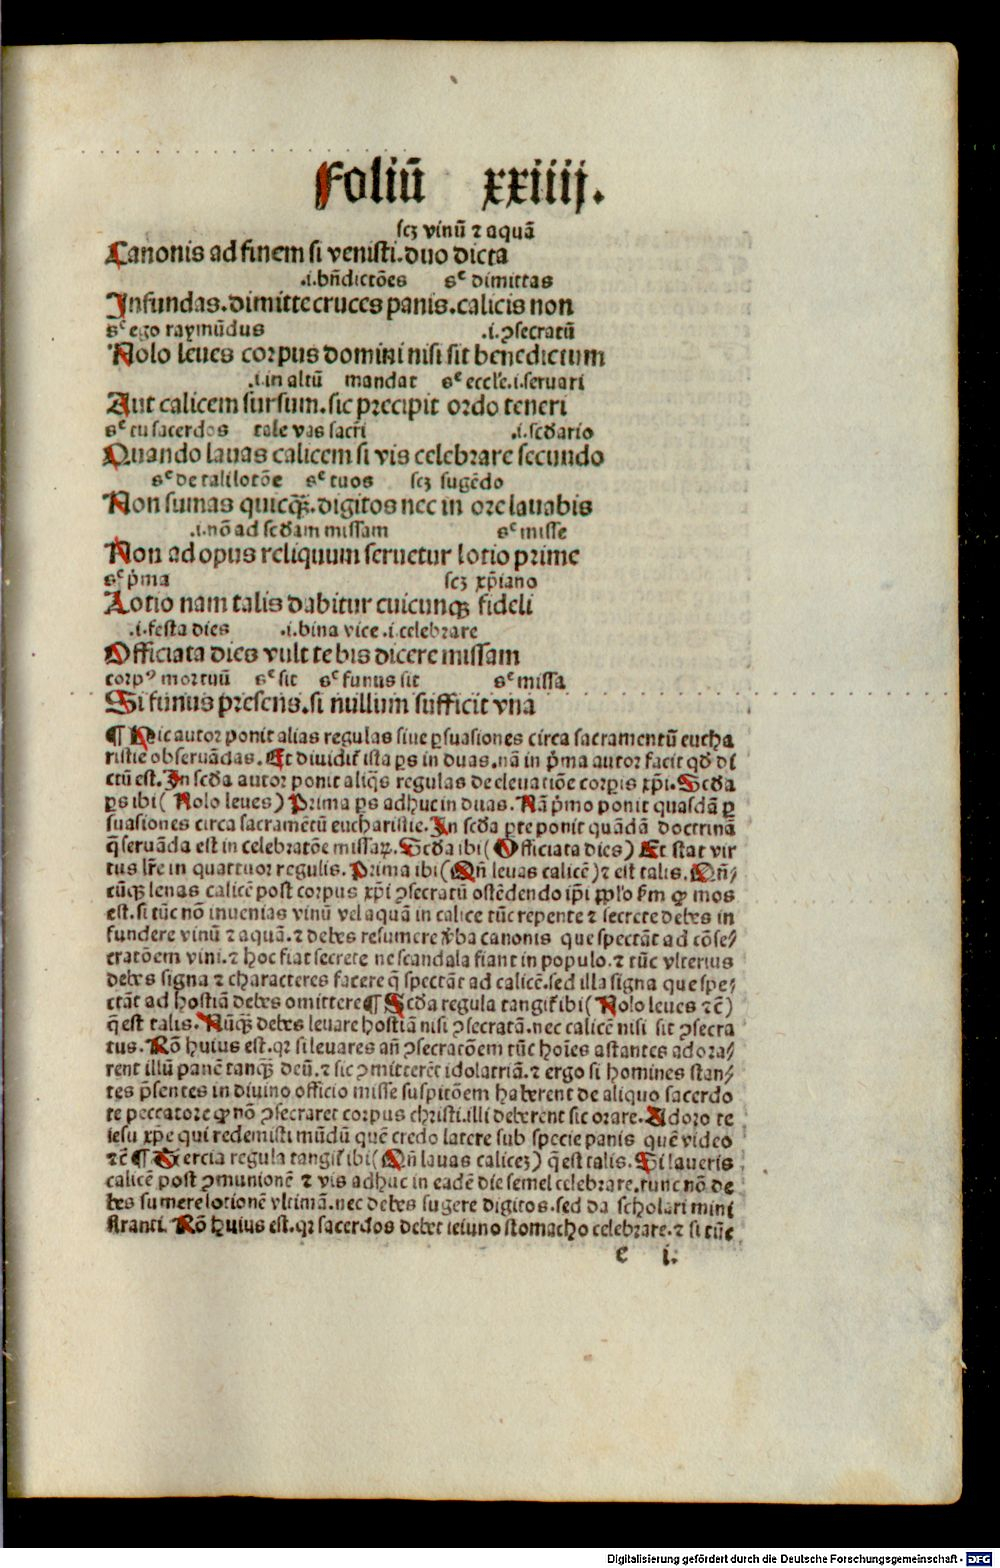 Foliū xxiiij.
scꝫ vinū ⁊ aquā
Canonis ad finem si venisti.duo dicta
.i.bn̄dictōes sᶜ dimittas
Infundas.dimitte cruces panis.calicis non
sᶜ ego raymūdus .i.ꝯsecratū
Nolo leues corpus domini nisi sit benedictum
.i.in altū mandat sᶜ eccl'e.i.seruari
Aut calicem sursum.sic precipit ordo teneri
sᶜ tu sacerdos tale vas sacri .i.scd'ario
Quando lauas calicem si vis celebrare secundo
sᶜ de tali lotōe sᶜ tuos scꝫ sugēdo
Non sumas quicq̄ꝫ.digitos nec in ore lauabis
.i.nō ad scd'am missam sᶜ misse
Non ad opus reliquum seruetur lotio prime
sᶜ p̄ma scꝫ xp̄iano
Lotio nam talis dabitur cuicunqꝫ fideli
.i.festa dies .i.bina vice .i.celebrare
Officiata dies vult te bis dicere missam
corpꝰ mortuū sᶜ sit sᶜ funus sit sᶜ missa
Si funus presens.si nullum sufficit vna
¶ Hic autor ponit alias regulas siue ꝑsuasiones circa sacramentū eucha
ristie obseruādas. Et diuidit̉ ista ꝑs in duas.nā in p̄ma autor facit qd̄ di
ctū est.In scd'a autor ponit aliq̄s regulas de eleuatiōe corꝑis xp̄i.Scd'a
ꝑs ibi( Nolo leues) Prima ꝑs adhuc in duas. Nā p̄mo ponit quasdā ꝑ
suasiones circa sacramētū eucharistie.In scd'a ꝑte ponit quādā doctrinā
q̄ seruāda est in celebratōe missaꝝ.Scd'a ibi(Officiata dies) Et stat vir
tus lr̄e in quattuor regulis. Prima ibi(Qn̄ leuas calicē)⁊ est talis.Qn̄/
cūqꝫ leuas calicē post corpus xp̄i ꝯsecratū ostēdendo ip̄i ꝓl'o ẜm ꝙ mos
est.si tūc nō inuenias vinū vel aquā in calice tūc repente ⁊ secrete debes in
fundere vinū ⁊ aquā.⁊ debes resumere v̄ba canonis que spectāt ad cōse/
cratōem vini.⁊ hoc fiat secrete ne scandala fiant in populo.⁊ tūc vlterius
debes signa ⁊ characteres facere q̄ spectāt ad calicē.sed illa signa que spe/
ctāt ad hostiā debes omittere¶ Scd'a regula tangit̉ ibi( Nolo leues ⁊c̄)
q̄ est talis.Nūq̄ꝫ debes leuare hostiā nisi ꝯsecratā.nec calicē nisi sit ꝯsecra
tus. Rō huius est.qꝛ si leuares an̄ ꝯsecratōem tūc hoīes astantes adora/
rent illū panē tanq̄ꝫ deū.⁊ sic ꝯmitterēt idolatriā.⁊ ergo si homines stan/
tes p̄sentes in diuino officio misse suspitōem haberent de aliquo sacerdo
te peccatore ꝙ nō ꝯsecraret corpus christi.illi deberent sic orare. Adoro te
iesu xp̄e qui redemisti mūdū quē credo latere sub specie panis quē video
⁊c̄ ¶ Tercia regula tangit̉ ibi(Qn̄ lauas caliceꝫ) q̄ est talis. Si laueris
calicē post ꝯmunionē ⁊ vis adhuc in eadē die semel celebrare.tunc nō de
bes sumere lotionē vltimā.nec debes sugere digitos.sed da scholari mini
stranti. Rō huius est.qꝛ sacerdos debet ieiuno stomacho celebrare.⁊ si tūc
e i.
Digitalisierung gefördert durch die Deutsche Forschungsgemeinschaft - DFG